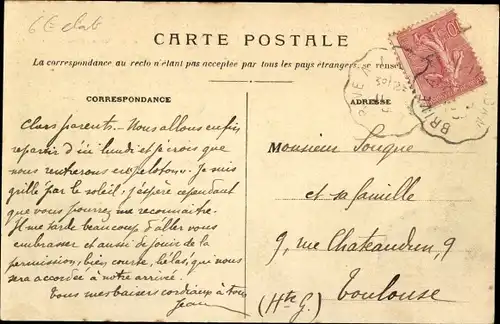 CARTE POSTALE
La correspondance au recto n'étant pas acceptée par tous les pays étrangers, se rensei
CORRESPONDANCE
ADRESSE
Chers parents - Nous allons enfin
repartir d'ici lundi et je crois que
nous rentrerons en peloton. Je suis
grillé par le soleil; j'espère cependant
que vous pourrez me reconnaître.
Il me tarde beaucoup d'aller vous
embrasser et aussi de jouir de la
permission, bien courte, hélas, qui nous
sera accordée à notre arrivé.
Tous mes baisers cordiaux à tous
Jean
Monsieur
et sa famille
9, rue Chateaudun, 9
(Hte G.) Toulouse